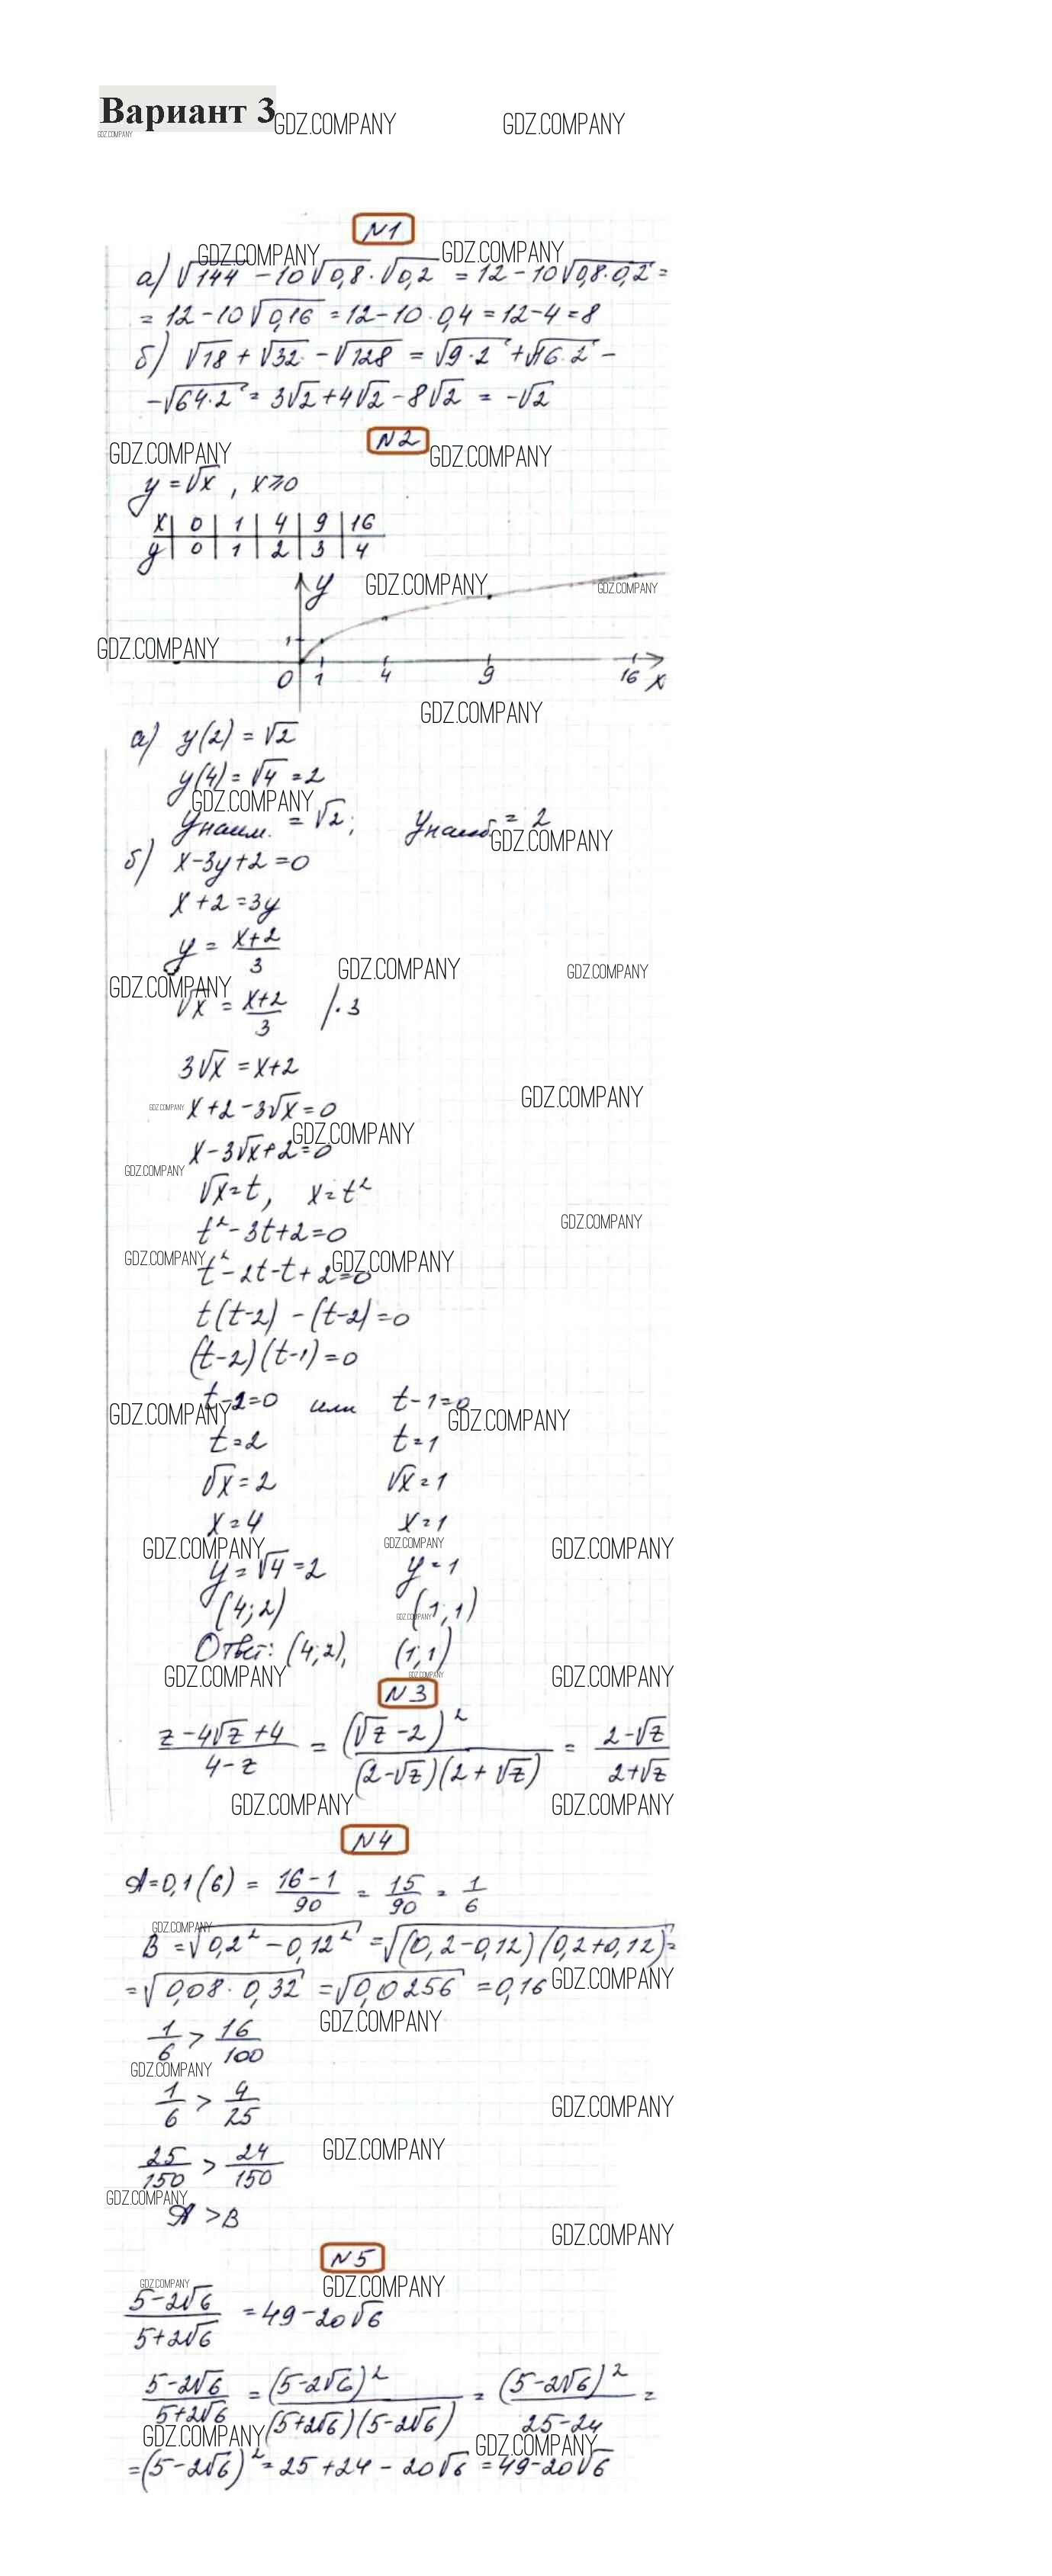 Вариант 3
GDZ.COMPANY GDZ.COMPANY
GDZ.COMPANY
N1
GDZ.COMPANY GDZ.COMPANY
а) √144 - 10√0,8 · √0,2 = 12 - 10√0,8·0,2 =
= 12 - 10√0,16 = 12 - 10 · 0,4 = 12 - 4 = 8
б) √18 + √32 - √128 = √9·2 + √16·2 -
- √64·2 = 3√2 + 4√2 - 8√2 = -√2
N2
GDZ.COMPANY GDZ.COMPANY
y = √x , x ⩾ 0
x | 0 | 1 | 4 | 9 | 16
y | 0 | 1 | 2 | 3 | 4
y GDZ.COMPANY GDZ.COMPANY
GDZ.COMPANY 1
0 1 4 9 16 x
GDZ.COMPANY
а) y(2) = √2
y(4) = √4 = 2
GDZ.COMPANY
yнаим. = √2; yнаиб. = 2
GDZ.COMPANY
б) x - 3y + 2 = 0
x + 2 = 3y
y = (x+2)/3
GDZ.COMPANY GDZ.COMPANY GDZ.COMPANY
√x = (x+2)/3 / · 3
3√x = x + 2
GDZ.COMPANY
GDZ.COMPANY x + 2 - 3√x = 0
GDZ.COMPANY
x - 3√x + 2 = 0
GDZ.COMPANY
√x = t, x = t²
GDZ.COMPANY
t² - 3t + 2 = 0
GDZ.COMPANY GDZ.COMPANY
t² - 2t - t + 2 = 0
t(t-2) - (t-2) = 0
(t-2)(t-1) = 0
t - 2 = 0 или t - 1 = 0
GDZ.COMPANY GDZ.COMPANY
t = 2 t = 1
√x = 2 √x = 1
x = 4 x = 1
GDZ.COMPANY GDZ.COMPANY GDZ.COMPANY
y = √4 = 2 y = 1
(4; 2) (1; 1)
GDZ.COMPANY
Ответ: (4; 2), (1; 1)
GDZ.COMPANY GDZ.COMPANY GDZ.COMPANY
N3
(z - 4√z + 4)/(4 - z) = (√z - 2)²/((2-√z)(2+√z)) = (2-√z)/(2+√z)
GDZ.COMPANY GDZ.COMPANY
N4
A = 0,1(6) = (16-1)/90 = 15/90 = 1/6
GDZ.COMPANY
B = √0,2² - 0,12² = √(0,2-0,12)(0,2+0,12) =
= √0,08 · 0,32 = √0,0256 = 0,16 GDZ.COMPANY
GDZ.COMPANY
1/6 > 16/100
GDZ.COMPANY
1/6 > 4/25
GDZ.COMPANY
GDZ.COMPANY
25/150 > 24/150
GDZ.COMPANY
A > B
GDZ.COMPANY
N5
GDZ.COMPANY GDZ.COMPANY
(5-2√6)/(5+2√6) = 49 - 20√6
(5-2√6)/(5+2√6) = (5-2√6)²/((5+2√6)(5-2√6)) = (5-2√6)²/(25-24) =
GDZ.COMPANY GDZ.COMPANY
= (5-2√6)² = 25 + 24 - 20√6 = 49 - 20√6